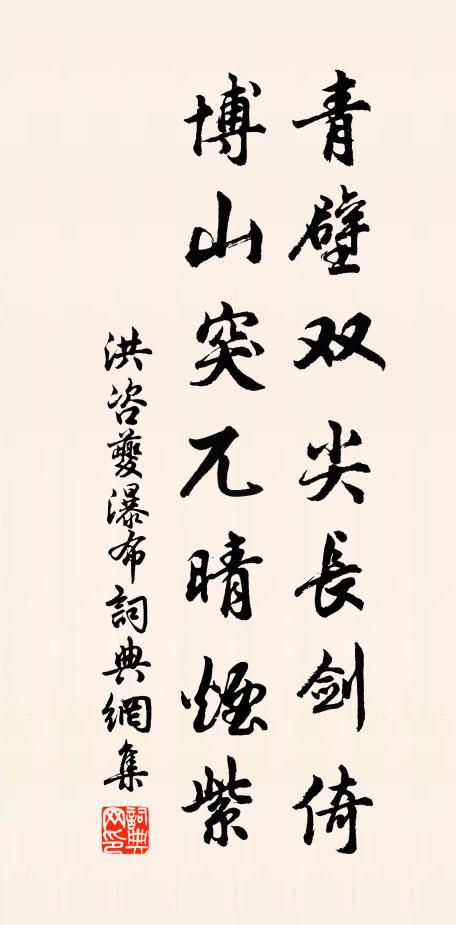 青壁双尖長剑倚
博山突兀晴煙紫
洪咨夔瀑布詞典網集
詞典
网印